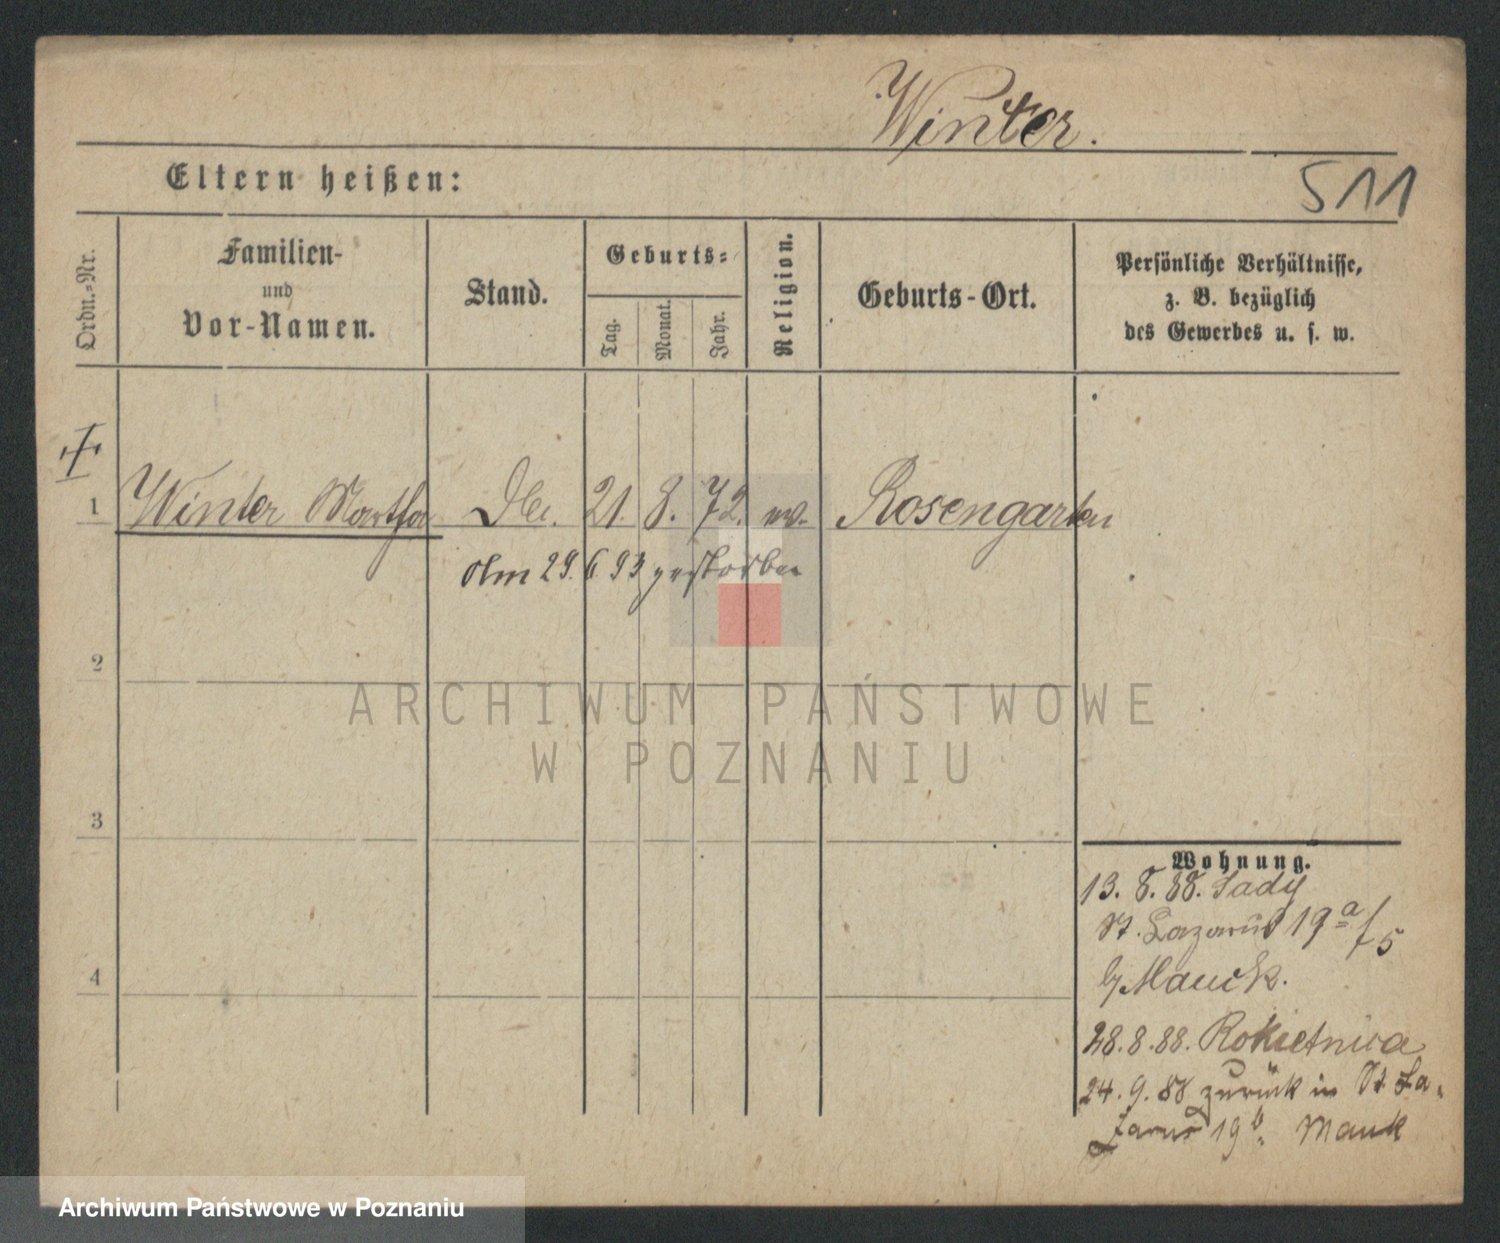 Winter.
511
Eltern heißen:
Ordn.-Nr.
Familien-
und
Vor-Namen.
Stand.
Geburts-
Tag.
Monat.
Jahr.
Religion.
Geburts-Ort.
Persönliche Verhältnisse,
z. B. bezüglich
des Gewerbes u. s. w.
1 Winter Martha 21. 8. 72. ev. Rosengarten
Am 29. 6 93 gestorben
2
ARCHIWUM PAŃSTWOWE
W POZNANIU
3
Wohnung.
13. 8. 88. Sady
St. Lazarus 19a/5
b/ Mauck.
4
28. 8. 88. Rokietnica
24. 9. 88 zurück in St La-
zarus 19b. Mauk
Archiwum Państwowe w Poznaniu